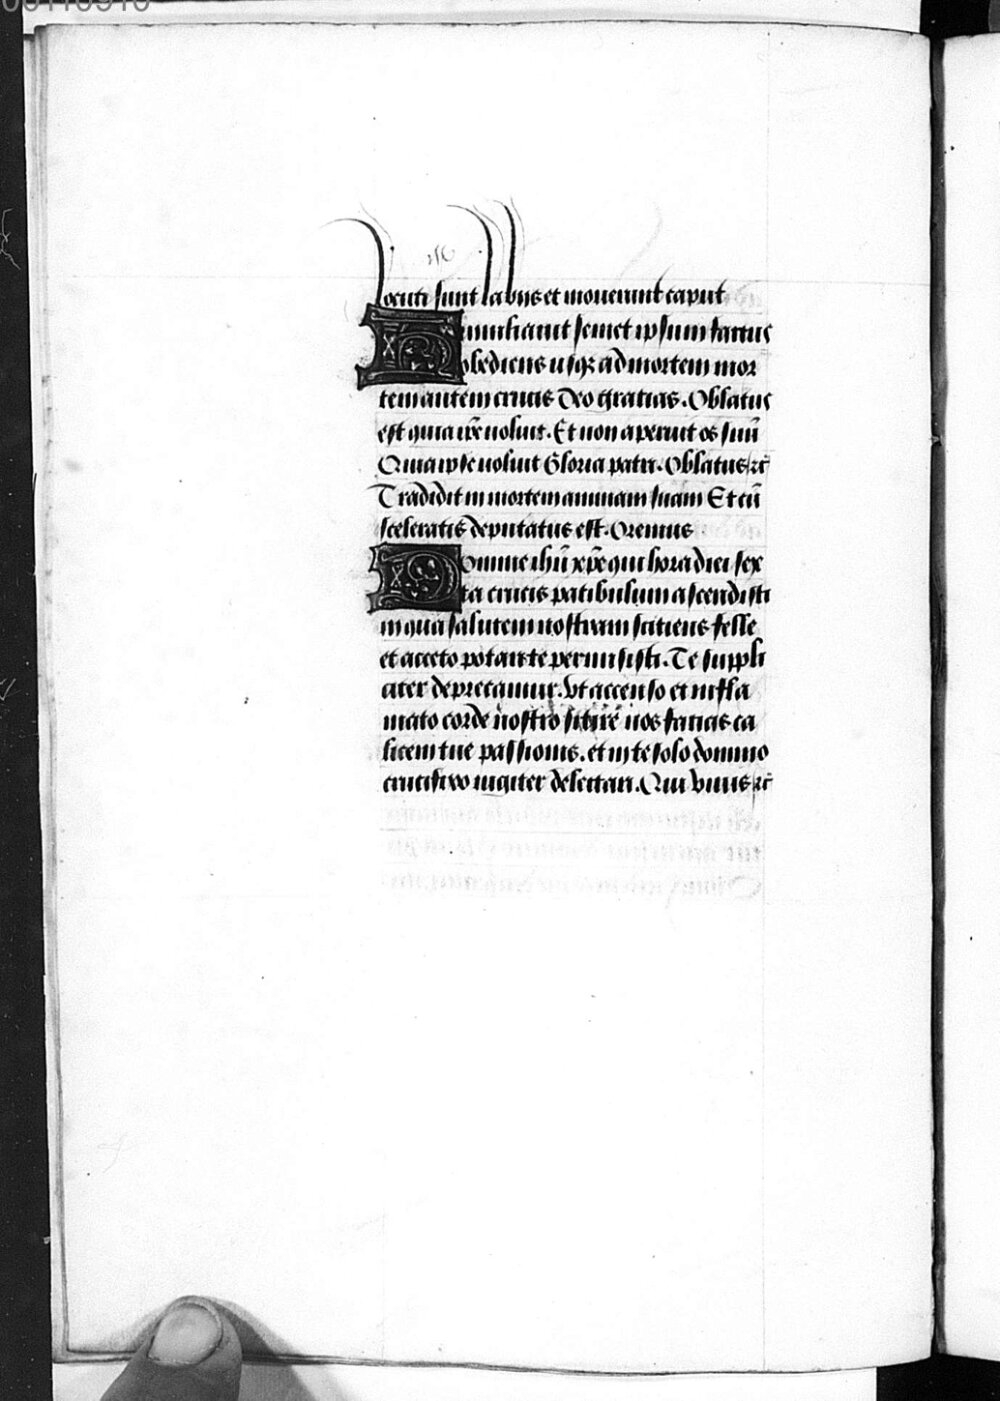 Locuti sunt labiis et mouerunt caput
Humiliauit semet ipsum factus
obediens usqz ad mortem mor
tem autem crucis Deo gratias. Oblatus
est quia ip̄e uoluit. Et non aperuit os suū
Quia ipse uoluit Gloria patri. Oblatus zc̄
Tradidit in mortem animam suam Et cū
sceleratis deputatus est. Oremus
Domine ihū xp̄e qui hora diei sex
ta crucis patibulum ascendisti
in qua salutem nostram sitiens felle
et aceto potari te permisisti. Te suppli
citer deprecamur. Vt accenso et infla
mato corde nostro sitire nos facias ca
licem tue passionis. et in te solo domino
crucifixo iugiter delectari. Qui viuis zc̄